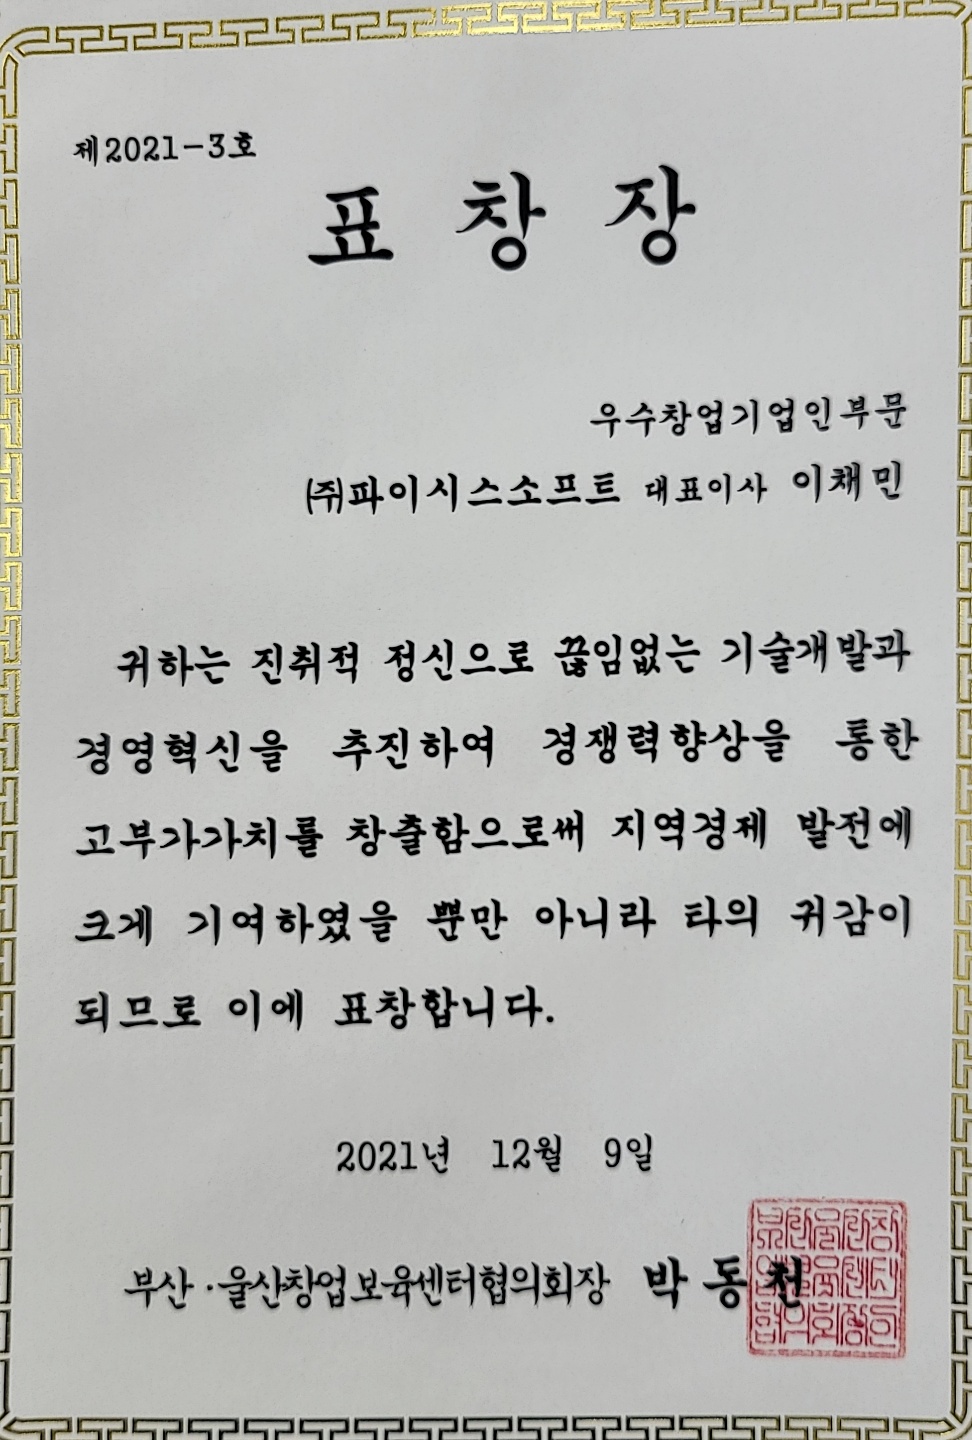 제2021-3호
표 창 장
우수창업기업인부문
㈜파이시스소프트 대표이사 이채민
귀하는 진취적 정신으로 끊임없는 기술개발과
경영혁신을 추진하여 경쟁력향상을 통한
고부가가치를 창출함으로써 지역경제 발전에
크게 기여하였을 뿐만 아니라 타의 귀감이
되므로 이에 표창합니다.
2021년 12월 9일
부산·울산창업보육센터협의회장 박동천